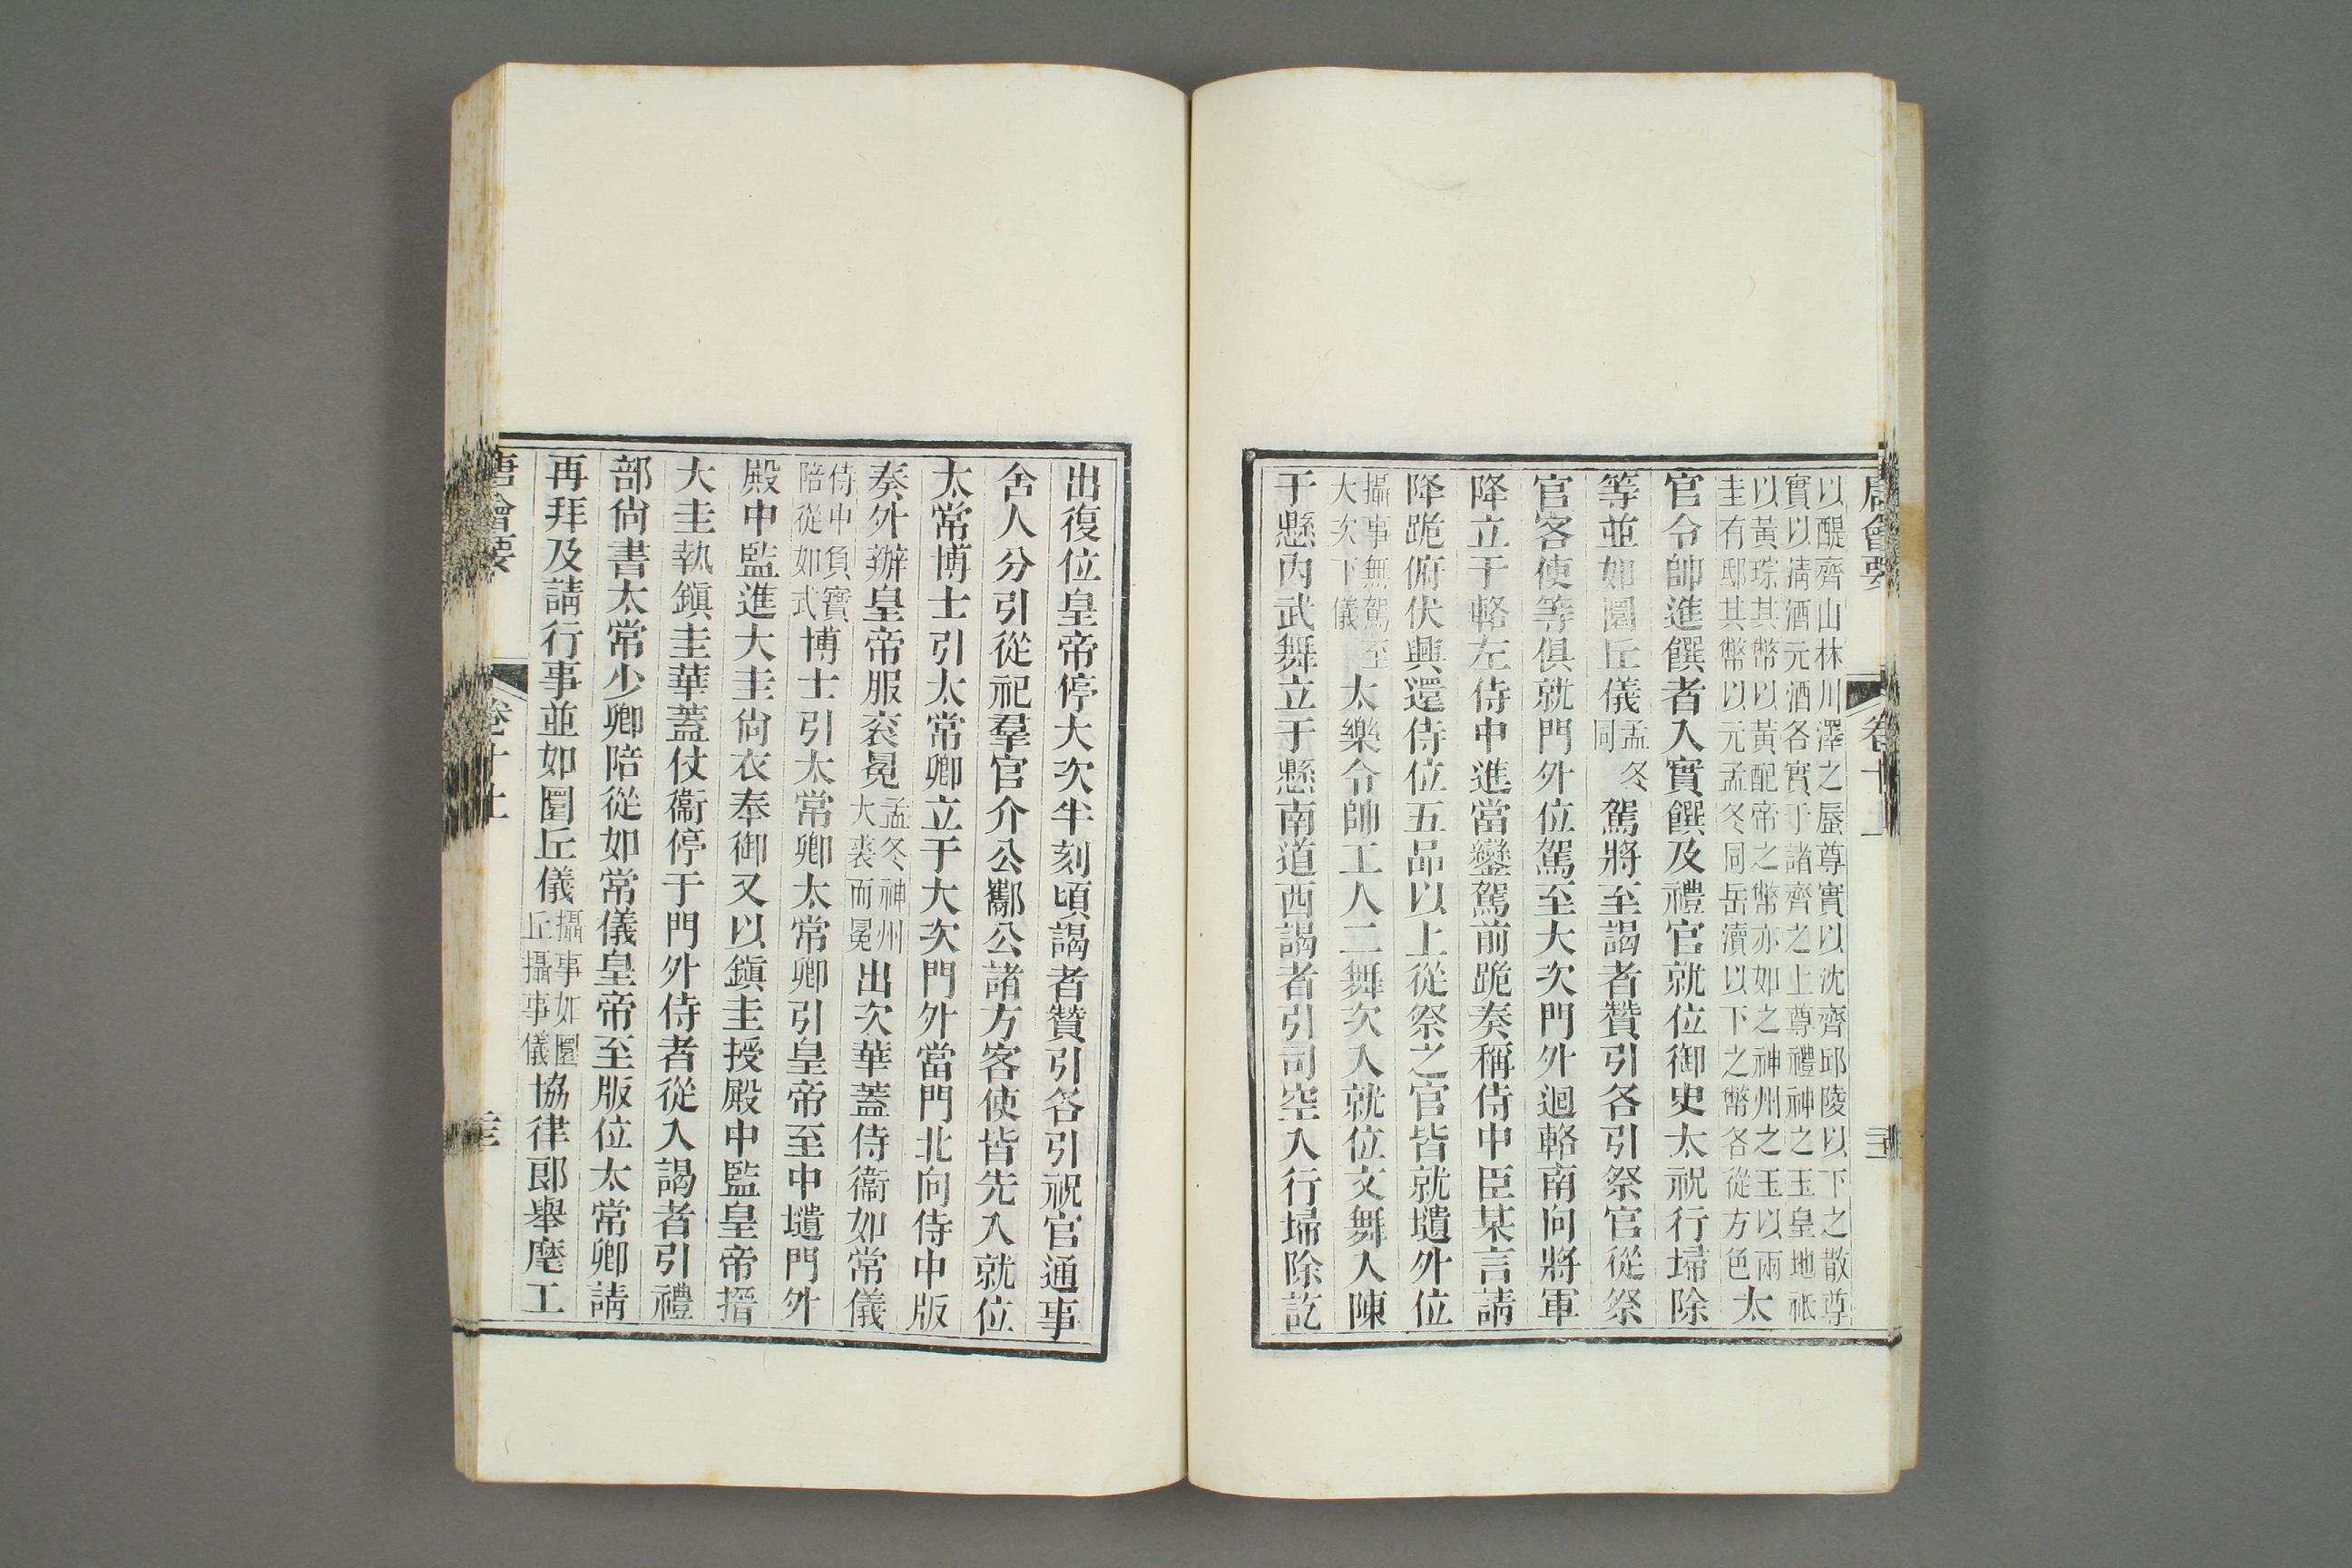 唐會要 卷十上
以醍齊山林川澤之蜃尊實以沈齊邱陵以下之散尊
實以清酒元酒各實于諸齊之上尊禮神之玉皇地祇
以黃琮其幣以黃配帝之幣亦如之神州之玉以兩
圭有邸其幣以元孟冬同岳瀆以下之幣各從方色太
官令帥進饌者入實饌及禮官就位御史太祝行埽除
等並如圜丘儀孟冬同駕將至謁者贊引各引祭官從祭
官客使等俱就門外位駕至大次門外迴輅南向將軍
降立于輅左侍中進當鑾駕前跪奏稱侍中臣某言請
降跪俯伏興還侍位五品以上從祭之官皆就壝外位
攝事無駕至大次下儀太樂令帥工人二舞次入就位文舞入陳
于懸內武舞立于懸南道西謁者引司空入行埽除訖
出復位皇帝停大次半刻頃謁者贊引各引祝官通事
舍人分引從祀羣官介公酅公諸方客使皆先入就位
太常博士引太常卿立于大次門外當門北向侍中版
奏外辦皇帝服衮冕孟冬神州大裘而冕出次華蓋侍衞如常儀
侍中負寶陪從如式博士引太常卿太常卿引皇帝至中壝門外
殿中監進大圭尙衣奉御又以鎭圭授殿中監皇帝搢
大圭執鎭圭華蓋仗衞停于門外侍者從入謁者引禮
部尙書太常少卿陪從如常儀皇帝至版位太常卿請
再拜及請行事並如圜丘儀攝事如圜丘攝事儀協律郞舉麾工
唐會要 卷十上